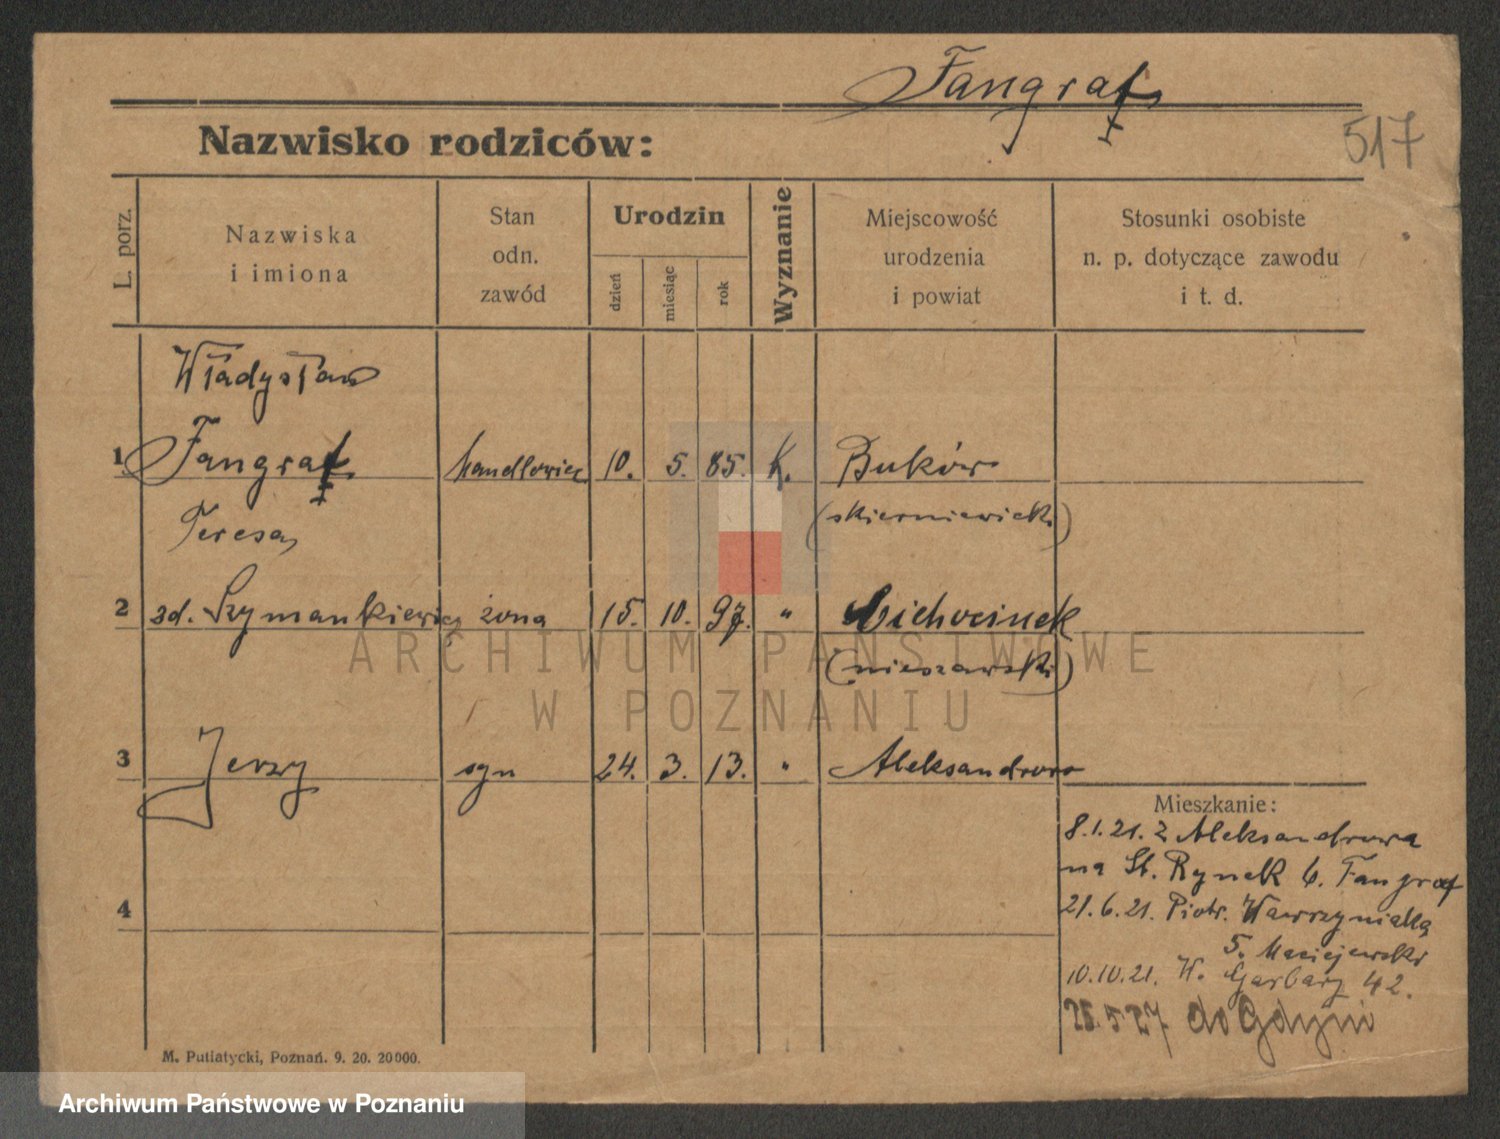 Fangraf
517
Nazwisko rodziców:
L. porz.
Nazwiska
i imiona
Stan
odn.
zawód
Urodzin
dzień
miesiąc
rok
Wyznanie
Miejscowość
urodzenia
i powiat
Stosunki osobiste
n. p. dotyczące zawodu
i t. d.
Władysław
1 Fangraf handlowiec 10. 5. 85. K. Buków
(skierniewicki)
Teresa
2 zd. Szymankiewicz żona 15. 10. 97. " Ciechocinek
(nieszawski)
3 Jerzy syn 24. 3. 13. " Aleksandrowo
4
Mieszkanie:
8.1.21. z Aleksandrowa
na St. Rynek 6. Fangraf
21.6.21. Piotr. Wawrzyniaka
5. Maciejewski
10.10.21. W. Garbary 42.
25.5 27 do Gdyni
M. Putiatycki, Poznań. 9. 20. 20000.
ARCHIWUM PAŃSTWOWE
W POZNANIU
Archiwum Państwowe w Poznaniu